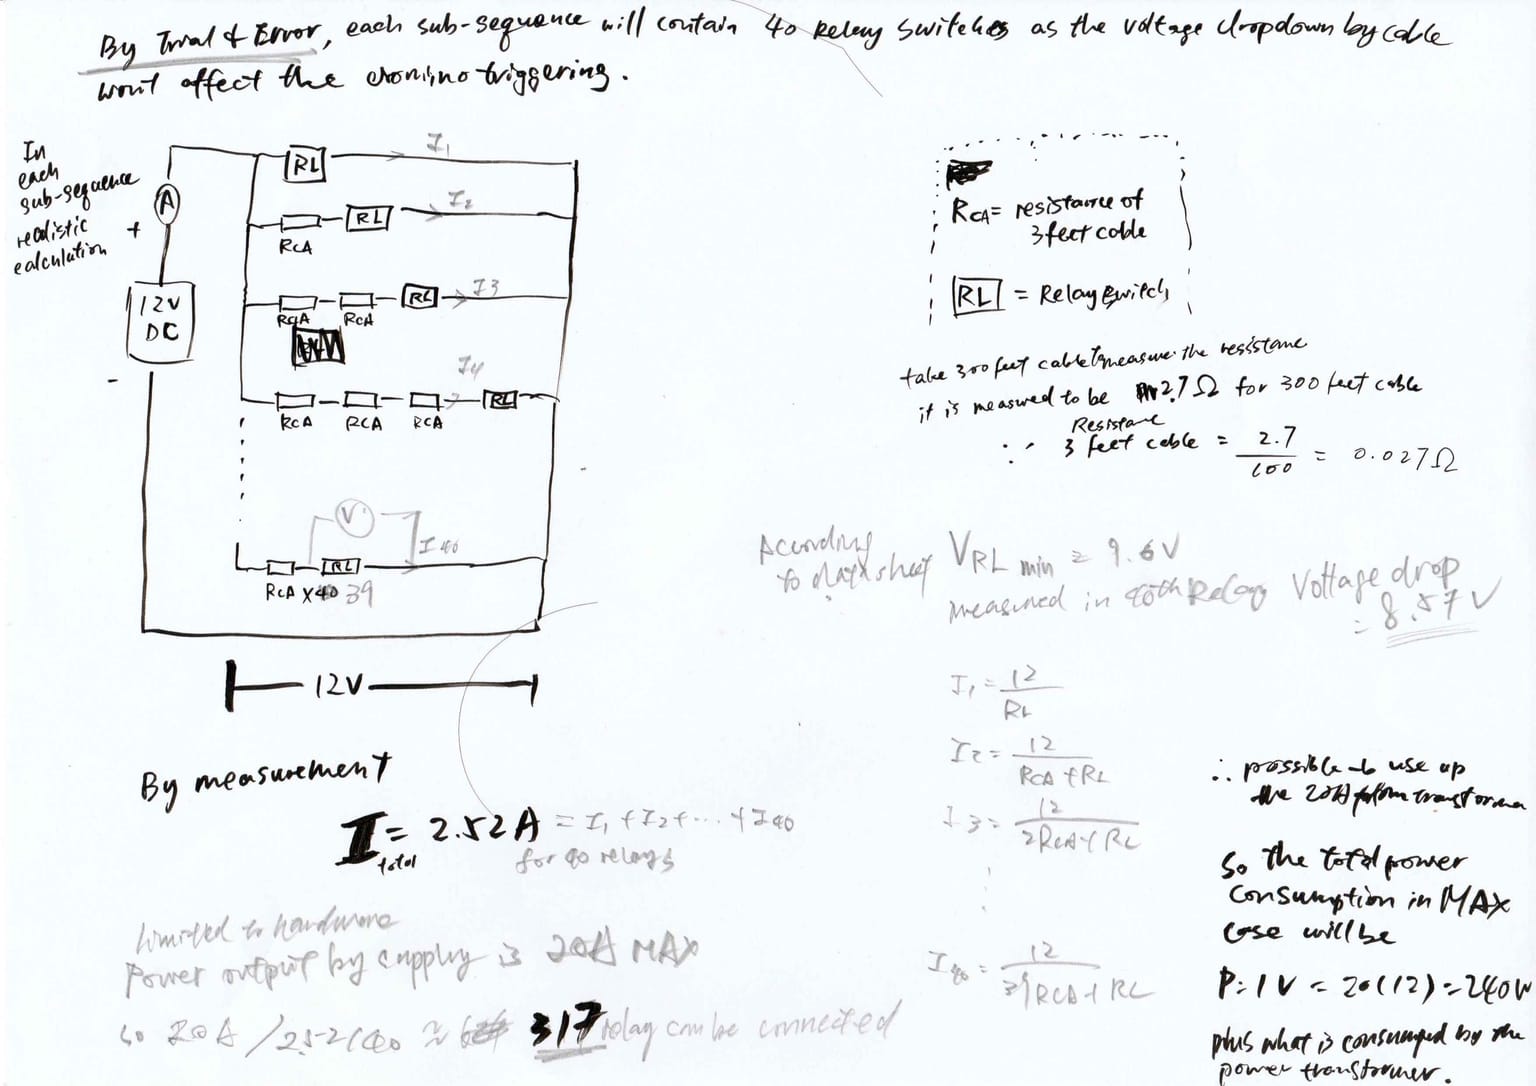 By Trial & Error, each sub-sequence will contain 40 Relay Switches as the voltage dropdown by cable
wont affect the domino triggering.
In
each
sub-sequence
realistic
calculation
+
A
12V
DC
-
RL
I1
RCA
RL
I2
RCA
RCA
RL
I3
RCA
RCA
RCA
RL
I4
V
I40
RL
RCA X 39
12V
RCA = resistance of
3 feet cable
RL = Relay Switch
take 300 feet cable to measure the resistance
it is measured to be 2.7Ω for 300 feet cable
Resistance
∵ 3 feet cable = 2.7/100 = 0.027Ω
According
to datasheet VRL min = 9.6V
measured in 40th Relay Voltage drop
= 8.57V
I1 = 12/RL
I2 = 12/RCA + RL
I3 = 12/2RCA + RL
I40 = 12/39RCA + RL
By measurement
I total = 2.52A = I1 + I2 + ... + I40
for 40 relays
Limited to hardware
Power output by supply is 20A MAX
so 20A / 2.52(40 ≈ 317 relay can be connected
∴ possible to use up
the 20A from transformer
so the total power
consumption in MAX
case will be
P = IV = 20(12) = 240W
plus what is consumed by the
power transformer.